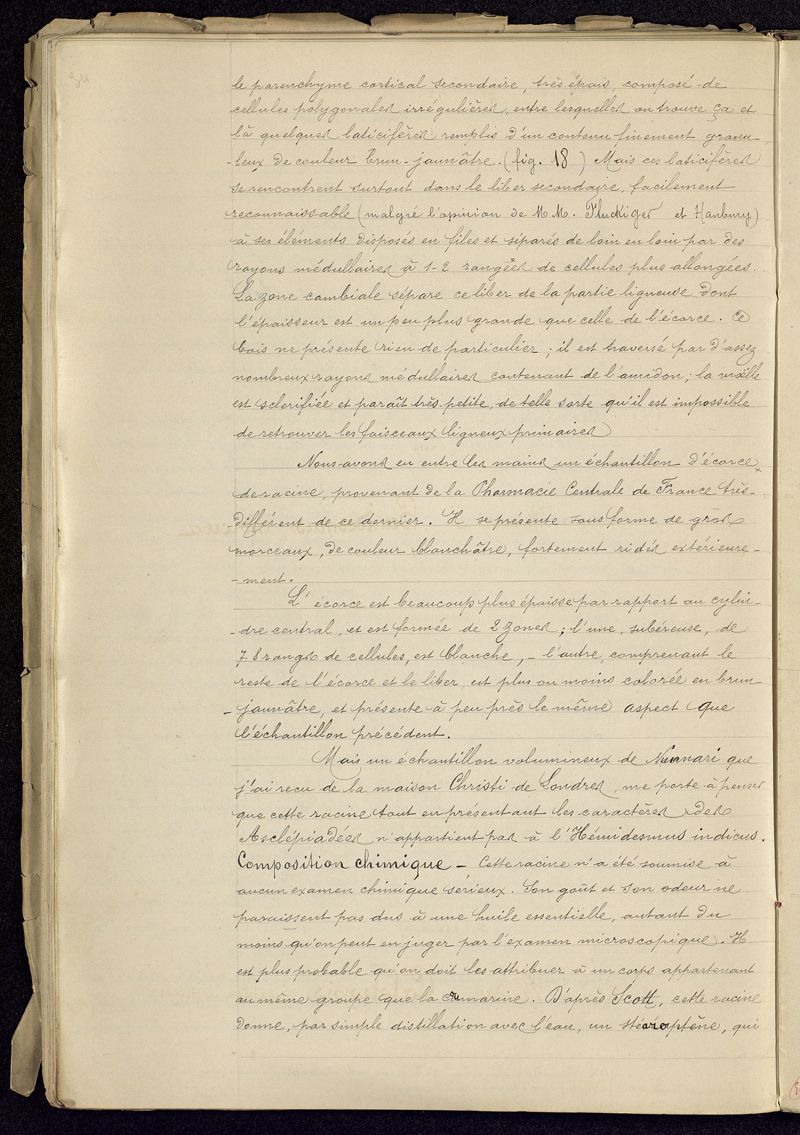 le parenchyme cortical secondaire, très épais, composé de
cellules polygonales irrégulières, entre lesquelles on trouve ça et
là quelques laticifères remplis d'un contenu finement granu-
-leux de couleur brun-jaunâtre. (fig. 18) Mais ces laticifères
se rencontrent surtout dans le liber secondaire, facilement
reconnaissable (malgré l'opinion de M.M. Fluckiger et Hanbury)
à ses éléments disposés en files et séparés de loin en loin par des
rayons médullaires à 1-2 rangées de cellules plus allongées.
La zone cambiale sépare ce liber de la partie ligneuse dont
l'épaisseur est un peu plus grande que celle de l'écorce. Ce
bois ne présente rien de particulier ; il est traversé par d'assez
nombreux rayons médullaires contenant de l'amidon ; la moëlle
est sclerifiée et paraît très petite, de telle sorte qu'il est impossible
de retrouver les faisceaux ligneux primaires
Nous avons eu entre les mains un échantillon d'écorce
de racine, provenant de la Pharmacie Centrale de France très-
différent de ce dernier. Il se présente sous forme de gros
morceaux, de couleur blanchâtre, fortement ridés extérieure-
-ment.
L'écorce est beaucoup plus épaisse par rapport au cylin-
-dre central, et est formée de 2 zones ; l'une, subéreuse, de
7-8 rangs de cellules, est blanche, - l'autre, comprenant le
reste de l'écorce et le liber, est plus ou moins colorée en brun-
-jaunâtre, et présente à peu près le même aspect que
l'échantillon précédent.
Mais un échantillon volumineux de Nunnari que
j'ai reçu de la maison Christi de Londres, me porte à penser
que cette racine tout en présentant les caractères des
Asclépiadées n'appartient pas à l'Hémidesmus indicus.
Composition chimique - Cette racine n'a été soumise à
aucun examen chimique sérieux. Son goût et son odeur ne
paraissent pas dus à une huile essentielle, autant du
moins qu'on peut en juger par l'examen microscopique. Il
est plus probable qu'on doit les attribuer à un corps appartenant
au même groupe que la coumarine. D'après Scott, cette racine
donne, par simple distillation avec l'eau, un stéaroptène, qui